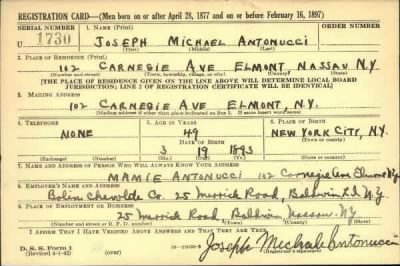 REGISTRATION CARD—(Men born on or after April 28, 1877 and on or before February 16, 1897)
SERIAL NUMBER 1. NAME (Print) ORDER NUMBER
U 1730 JOSEPH MICHAEL ANTONUCCI
(First) (Middle) (Last)
2. PLACE OF RESIDENCE (Print)
102 CARNEGIE AVE ELMONT NASSAU N.Y.
(Number and street) (Town, township, village, or city) (County) (State)
[THE PLACE OF RESIDENCE GIVEN ON THE LINE ABOVE WILL DETERMINE LOCAL BOARD
JURISDICTION; LINE 2 OF REGISTRATION CERTIFICATE WILL BE IDENTICAL]
3. MAILING ADDRESS
102 CARNEGIE AVE ELMONT, N.Y.
[Mailing address if other than place indicated on line 2. If same insert word same]
4. TELEPHONE 5. AGE IN YEARS 6. PLACE OF BIRTH
NONE 49 NEW YORK CITY, N.Y.
DATE OF BIRTH
3 19 1893
(Mo.) (Day) (Yr.)
7. NAME AND ADDRESS OF PERSON WHO WILL ALWAYS KNOW YOUR ADDRESS
MAMIE ANTONUCCI 102 Carnegie Ave Elmont N.Y.
8. EMPLOYER'S NAME AND ADDRESS
Co. 25 Merrick Road, Baldwin L.I. N.Y.
9. PLACE OF EMPLOYMENT OR BUSINESS
25 Merrick Road, Baldwin Nassau N.Y.
(Number and street or R. F. D. number) (Town) (County) (State)
I AFFIRM THAT I HAVE VERIFIED ABOVE ANSWERS AND THAT THEY ARE TRUE.
D. S. S. Form 1
(Revised 4-1-42) (over) Joseph Michale Antonucci